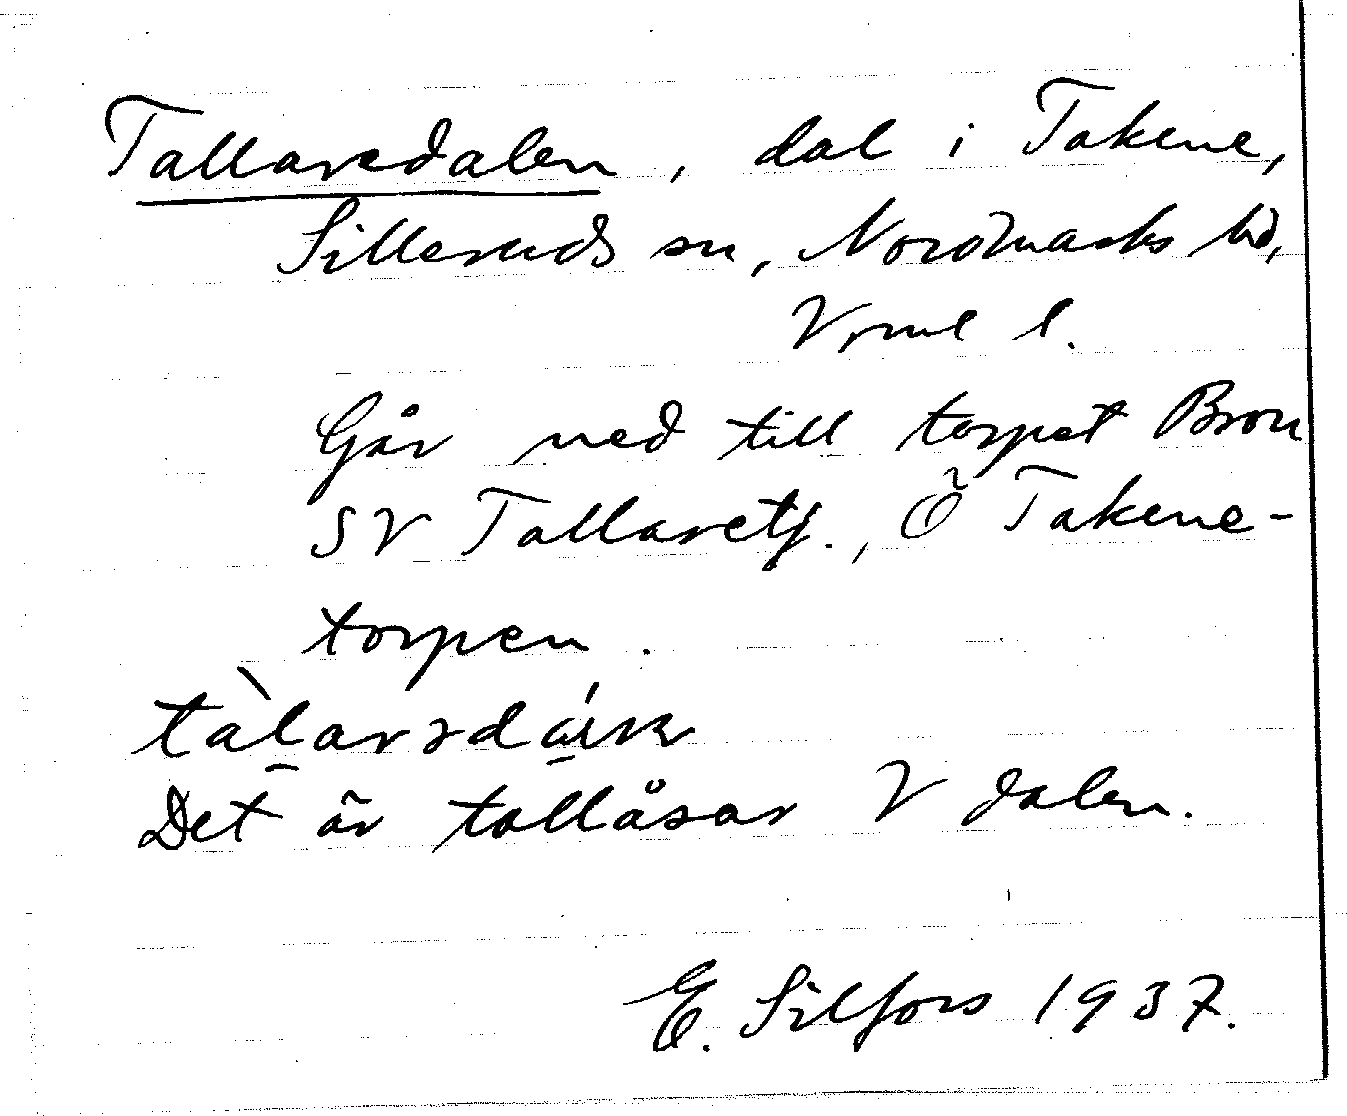 Tallaredalen, dal i Takene,
Silleruds sn, Nordmarks hd,
Vrml l.
Går ned till torpet Bron
SV Tallaretj., Ö Takene-
torpen.
Det är tallåsar V dalen.
E. Silfors 1937.